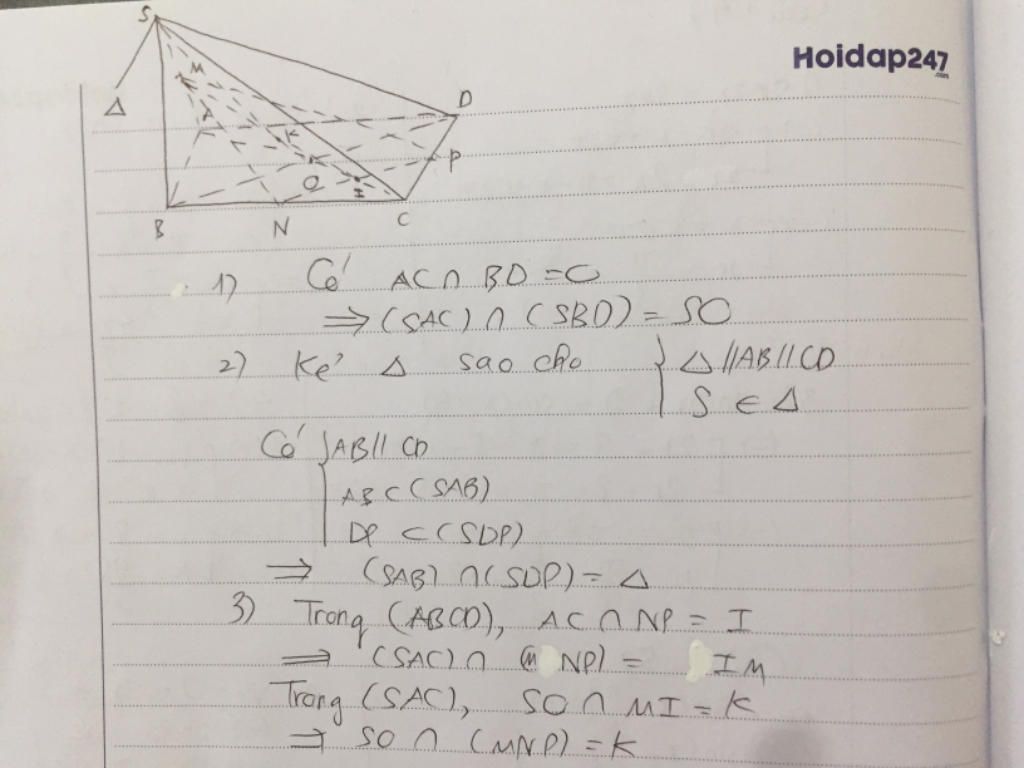 S
Hoidap247
.com
M
D
Δ
A
K
P
O
I
B
N
C
1) Có AC ∩ BD = O
⇒ (SAC) ∩ (SBD) = SO
2) Kẻ Δ sao cho { Δ // AB // CD
S ∈ Δ
Có { AB // CD
AB ⊂ (SAB)
DP ⊂ (SDP)
⇒ (SAB) ∩ (SDP) = Δ
3) Trong (ABCD), AC ∩ NP = I
⇒ (SAC) ∩ (M NP) = IM
Trong (SAC), SO ∩ MI = K
⇒ SO ∩ (MNP) = K